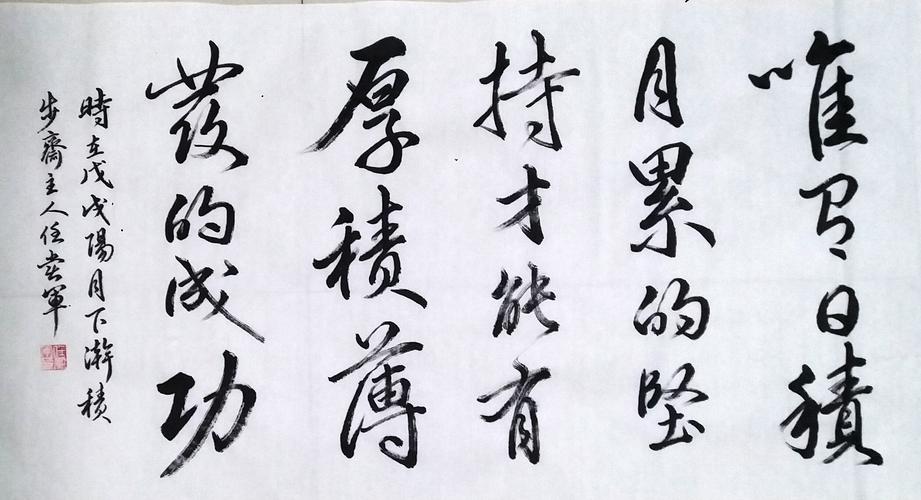 唯有日積
月累的堅
持才能有
厚積薄
發的成功
時在戊戌陽月下澣積
步齋主人任軍